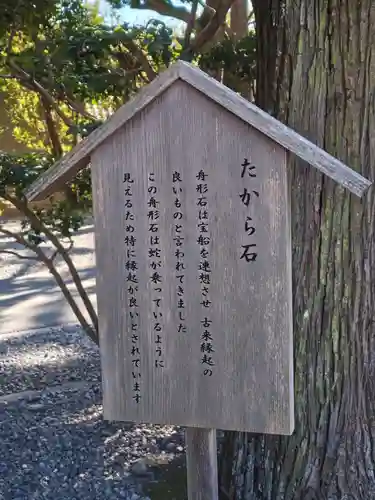 たから石
舟形石は宝船を連想させ　古来縁起の
良いものと言われてきました
この舟形石は蛇が乗っているように
見えるため特に縁起が良いとされています